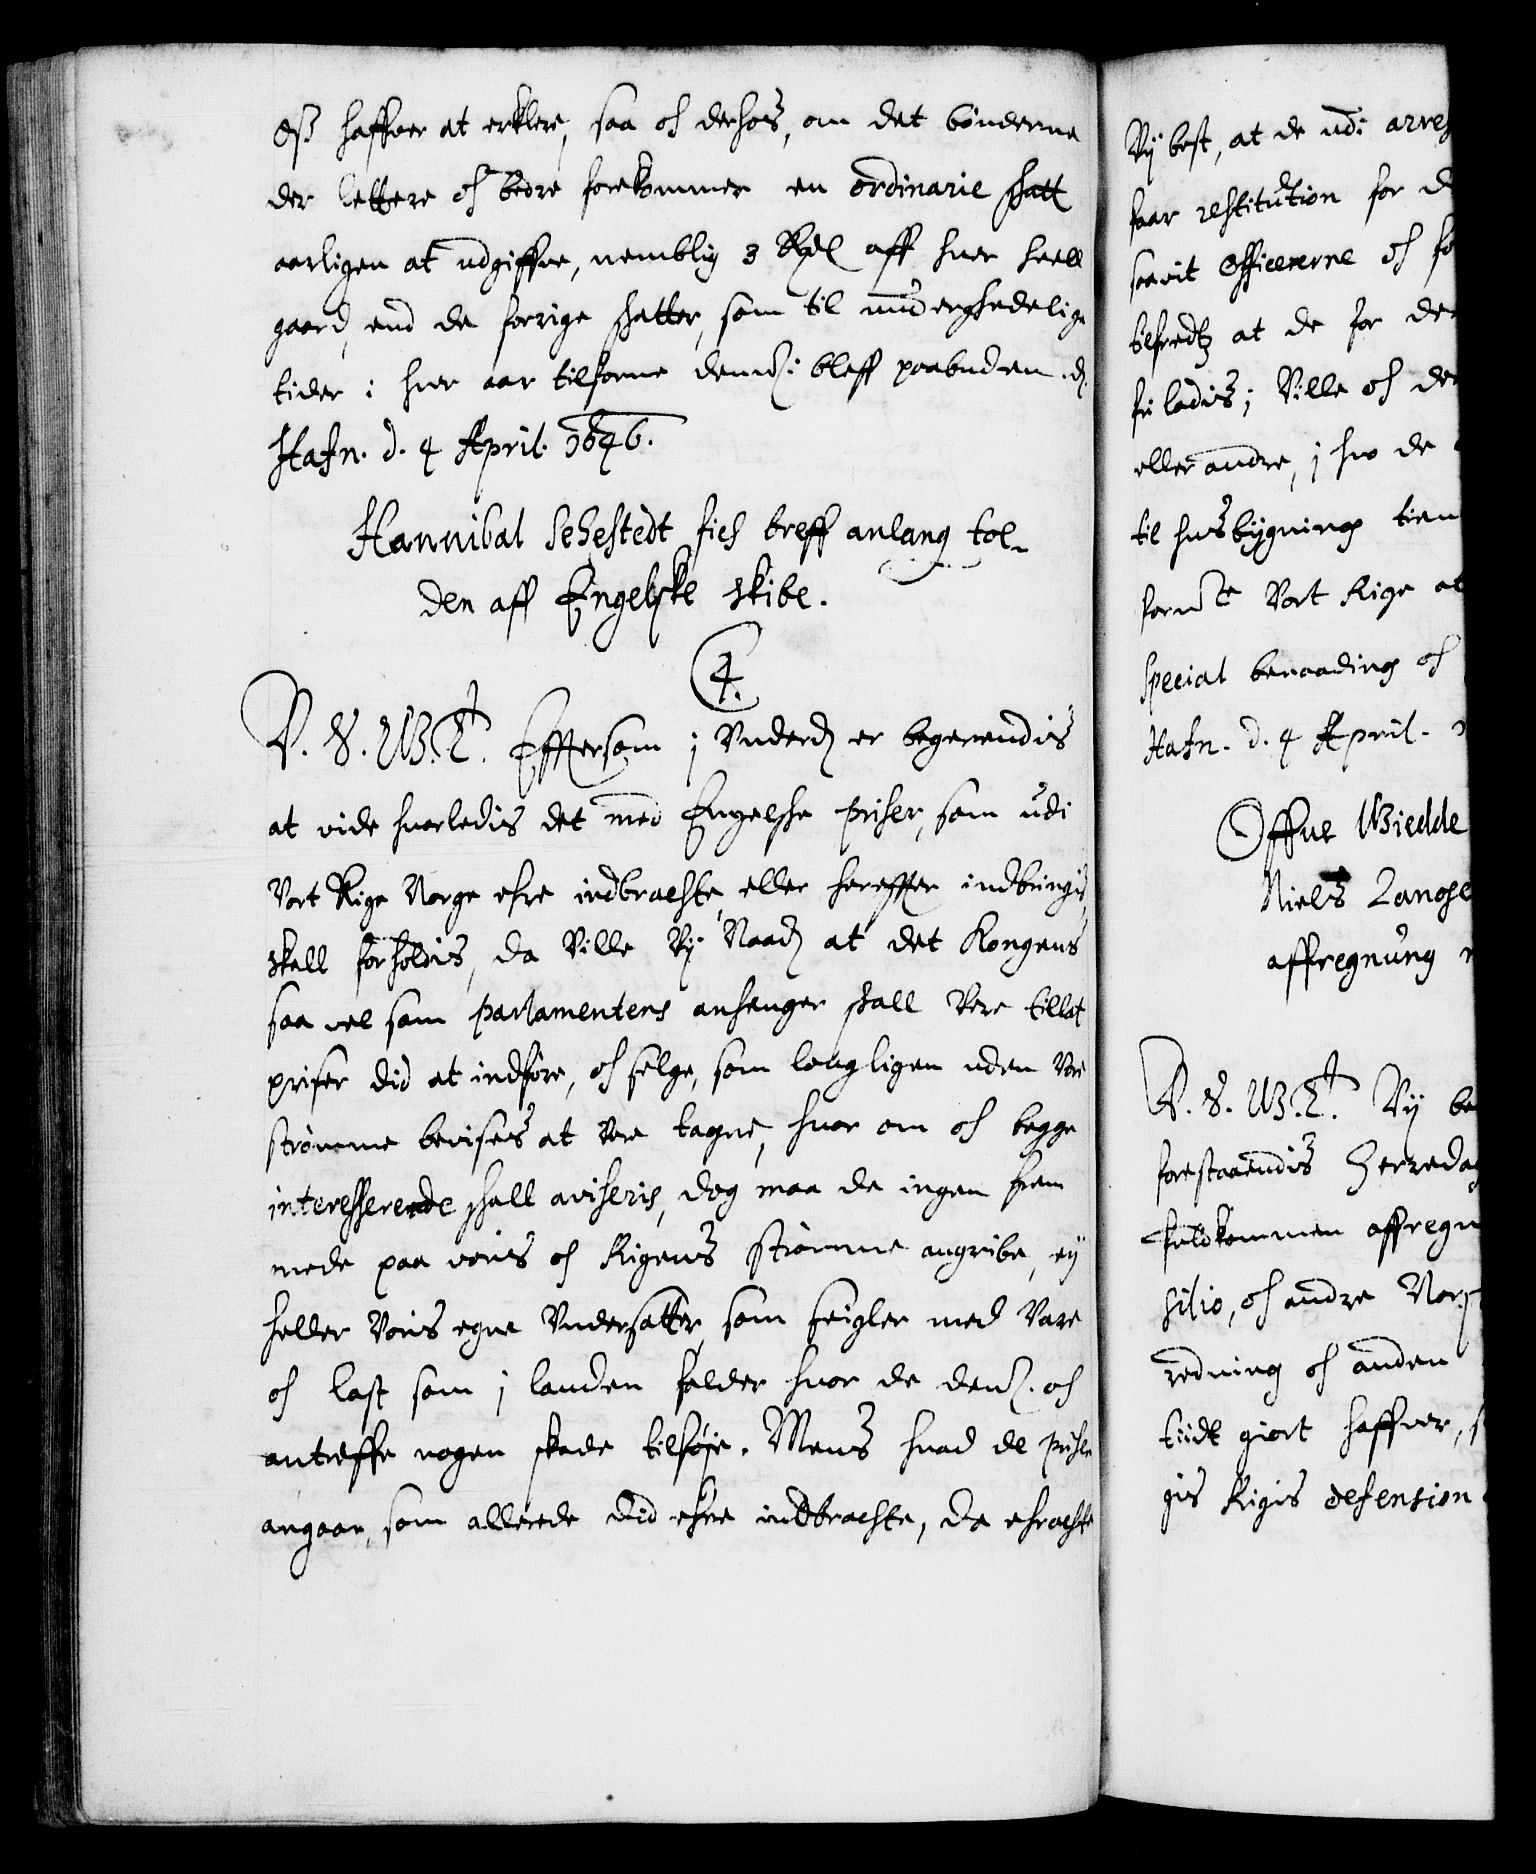 Oß haffver at erklere, saa och derhos, om det bønderne
der lettere och bedre forekommer en ordinarie skatt
aarligen at udgiffve, nemblig 3 Rdl aff hver heell
gaard, end de forrige skatter, som til underskedelige
tider i hver aar tilforne denn: bleff paabuden. d.
Hafn. d. 4 April. 1646.
Hannibal Sehestedt fich breff anlang tol-
den aff Engelske skibe.
4.
C. 4. W. G. T. Efftersom i Underd: er begerendis
at vide hvorledis det med Engelske priser, som udi
Vort Rige Norge ehre indbrachte, eller hereffter indbringis,
skall forholdis, da Ville Vy Naad: at det Kongens
saa vel som parlamentens anhenger skall Vere tillat
priser did at indføre, och selge, som lougligen uden Vore
strømme bevises at Vere tagne, hvor om och begge
interesserende skall aviseris, dog maa de ingen frem
mede paa voris och Rigens strømme angribe, ey
heller Voris egne Undersatter, som seigler med Vare
och last som i landen falder hvor de denn: och
antreffe nogen skade tilføje. Mens hvad de priser
angaar, som allerede did ehre indbrachte, da efrachte
Vy best, at de udi arres
faar restitution for d
saavit Officererne och fo
tilfredtz at de for de
fri ladis; Ville och de
eller andre, i hvo de
til husbygning tien
form te Vort Rige at
special benaading och
Hafn. d. 4 April.
Offve Giedde
Niels Lange
affregnung
Vy be
forestaaendis Herredag
fuldkommen affregn
silio, och andre Nor
redning och anden
tiidt giort haffver,
gis Rigis defension